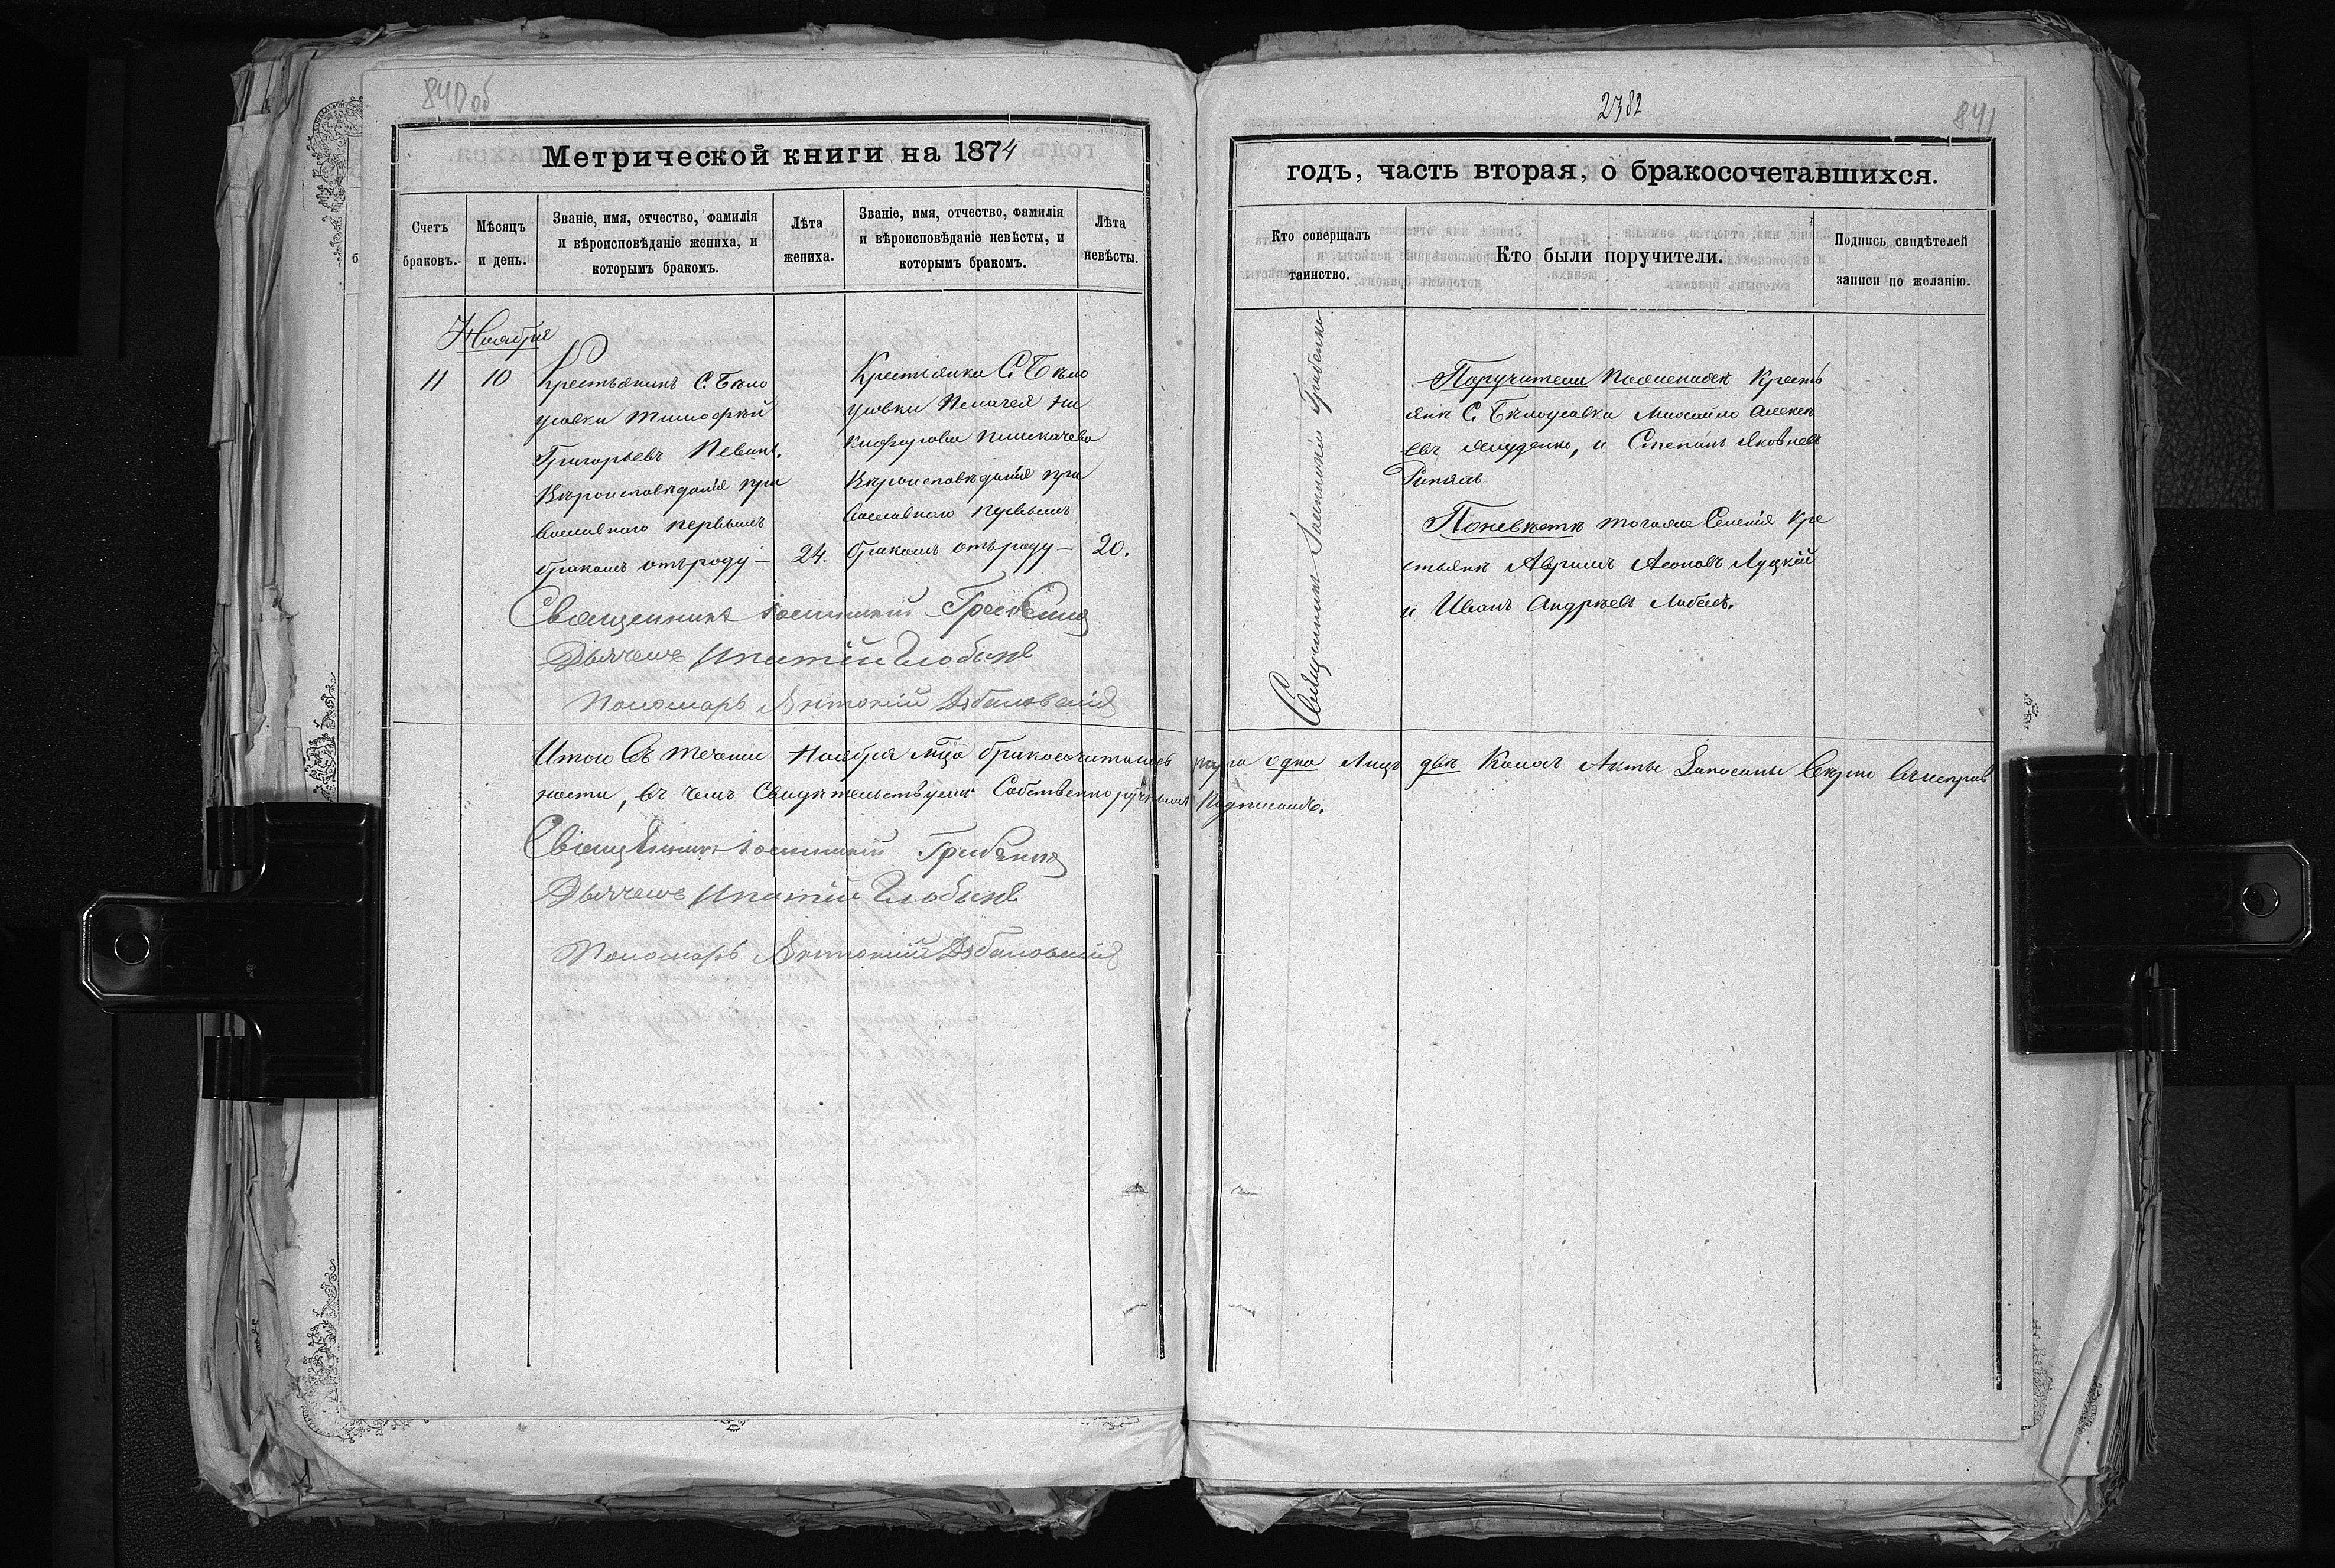 840об
Метрической книги на 1874
Счетъ браковъ.
Мѣсяцъ и день.
Званіе, имя, отчество, фамилія
и вѣроисповѣданіе жениха, и
которымъ бракомъ.
Лѣта
жениха.
Званіе, имя, отчество, фамилія
и вѣроисповѣданіе невѣсты, и
которымъ бракомъ.
Лѣта
невѣсты.
Ноября
11
10
Крестьянинъ С. Бѣло
усовки Тимофѣй
Григорьевъ Певинъ.
Вѣроисповѣданія пра
вославного первымъ
бракомъ отъ роду —
24.
Крестьянка С. Бѣло
усовки Пелагея Ни
кифорова
Вѣроисповѣданія пра
вославного первымъ
бракомъ отъ роду —
20.
Священникъ Іоанникій Гребенко
Дьячекъ Ипатій Глобинъ
Пономарь Антоній
Итого Въ течении Ноября м-ца бракосочиталось
ности, въ чемъ Свидѣтельствуемъ Собственноручнымъ
Священникъ Іоанникій Гребенко
Дьячекъ Ипатій Глобинъ
Пономарь Антоній
2382
841
годъ, часть вторая, о бракосочетавшихся.
Кто совершалъ
таинство.
Кто были поручители.
Подпись свидѣтелей
записи по желанію.
Священникъ Іоанникій Гребенко
Поручители По женихѣ Кресть
янѣ С. Бѣлоусовки Михайло Алексѣ
евъ и Степанъ Яковлевъ
По невѣстѣ того же Селенія Кре
стьянѣ Аврамъ Луцкій
и Иванъ Андрѣевъ
пара одна Лицъ двѣ Коихъ Акты Записаны Вѣрно
Подписомъ.